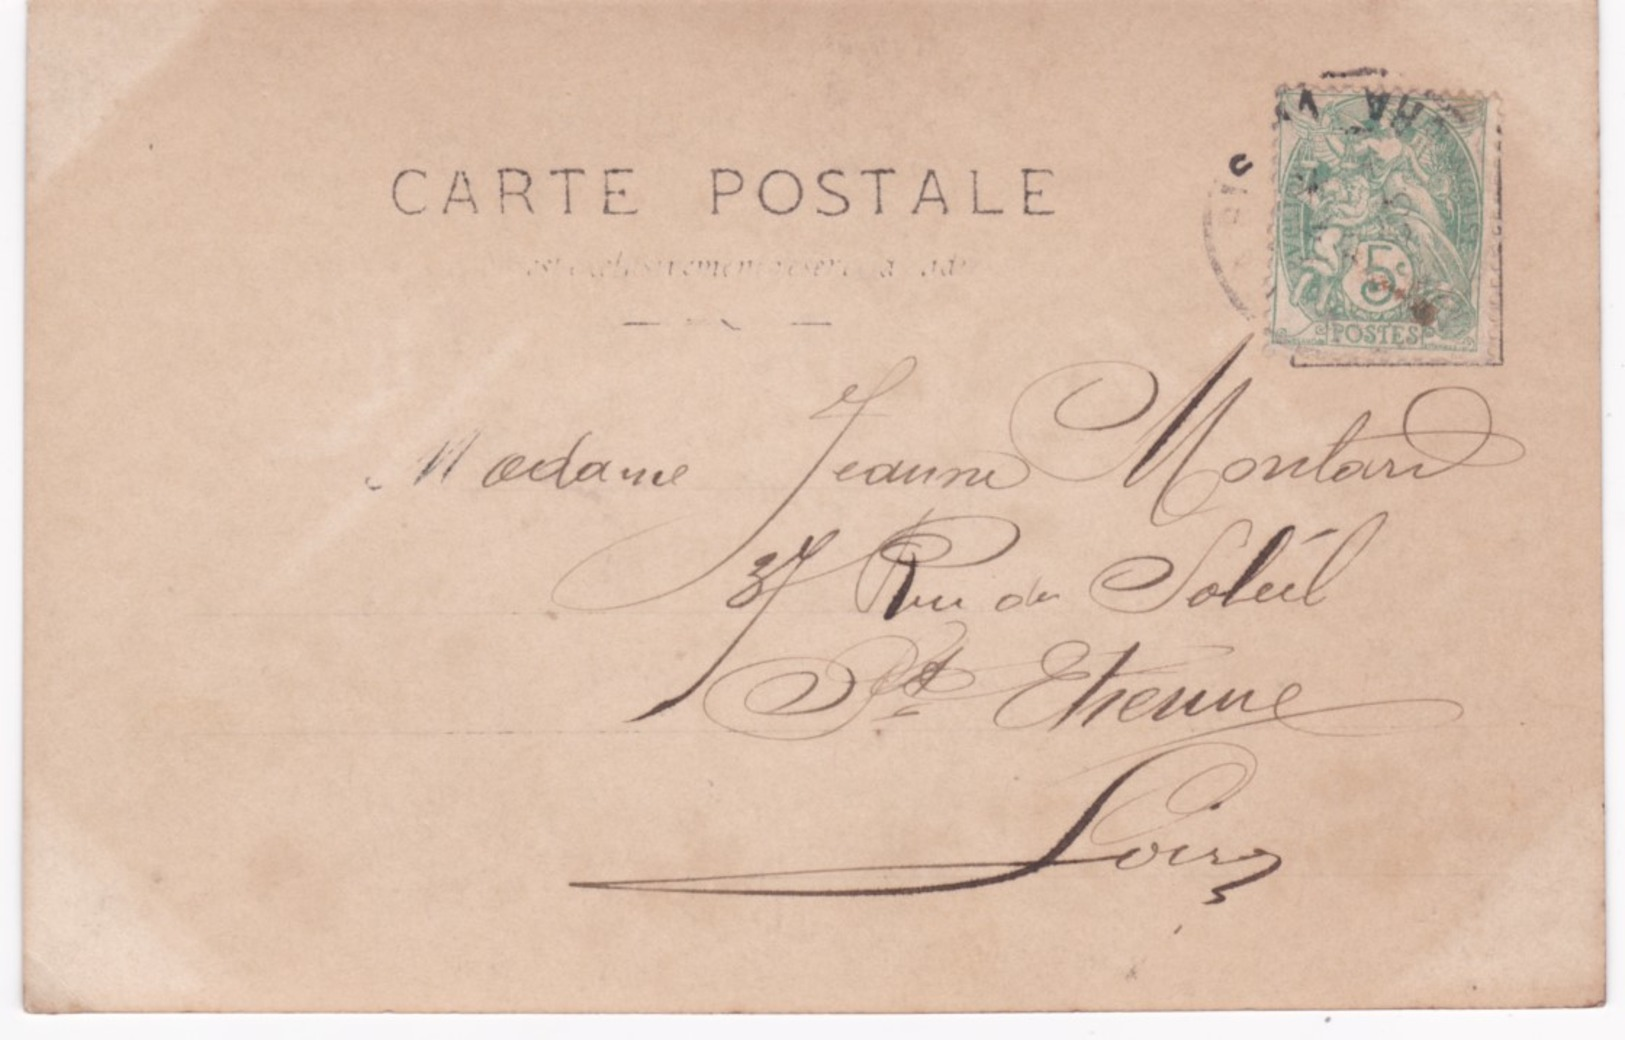 CARTE POSTALE
est exclusivement réservé à
5c
POSTES
Madame Jeanne Montard
37 Rue du Soleil
St Etienne
Loire